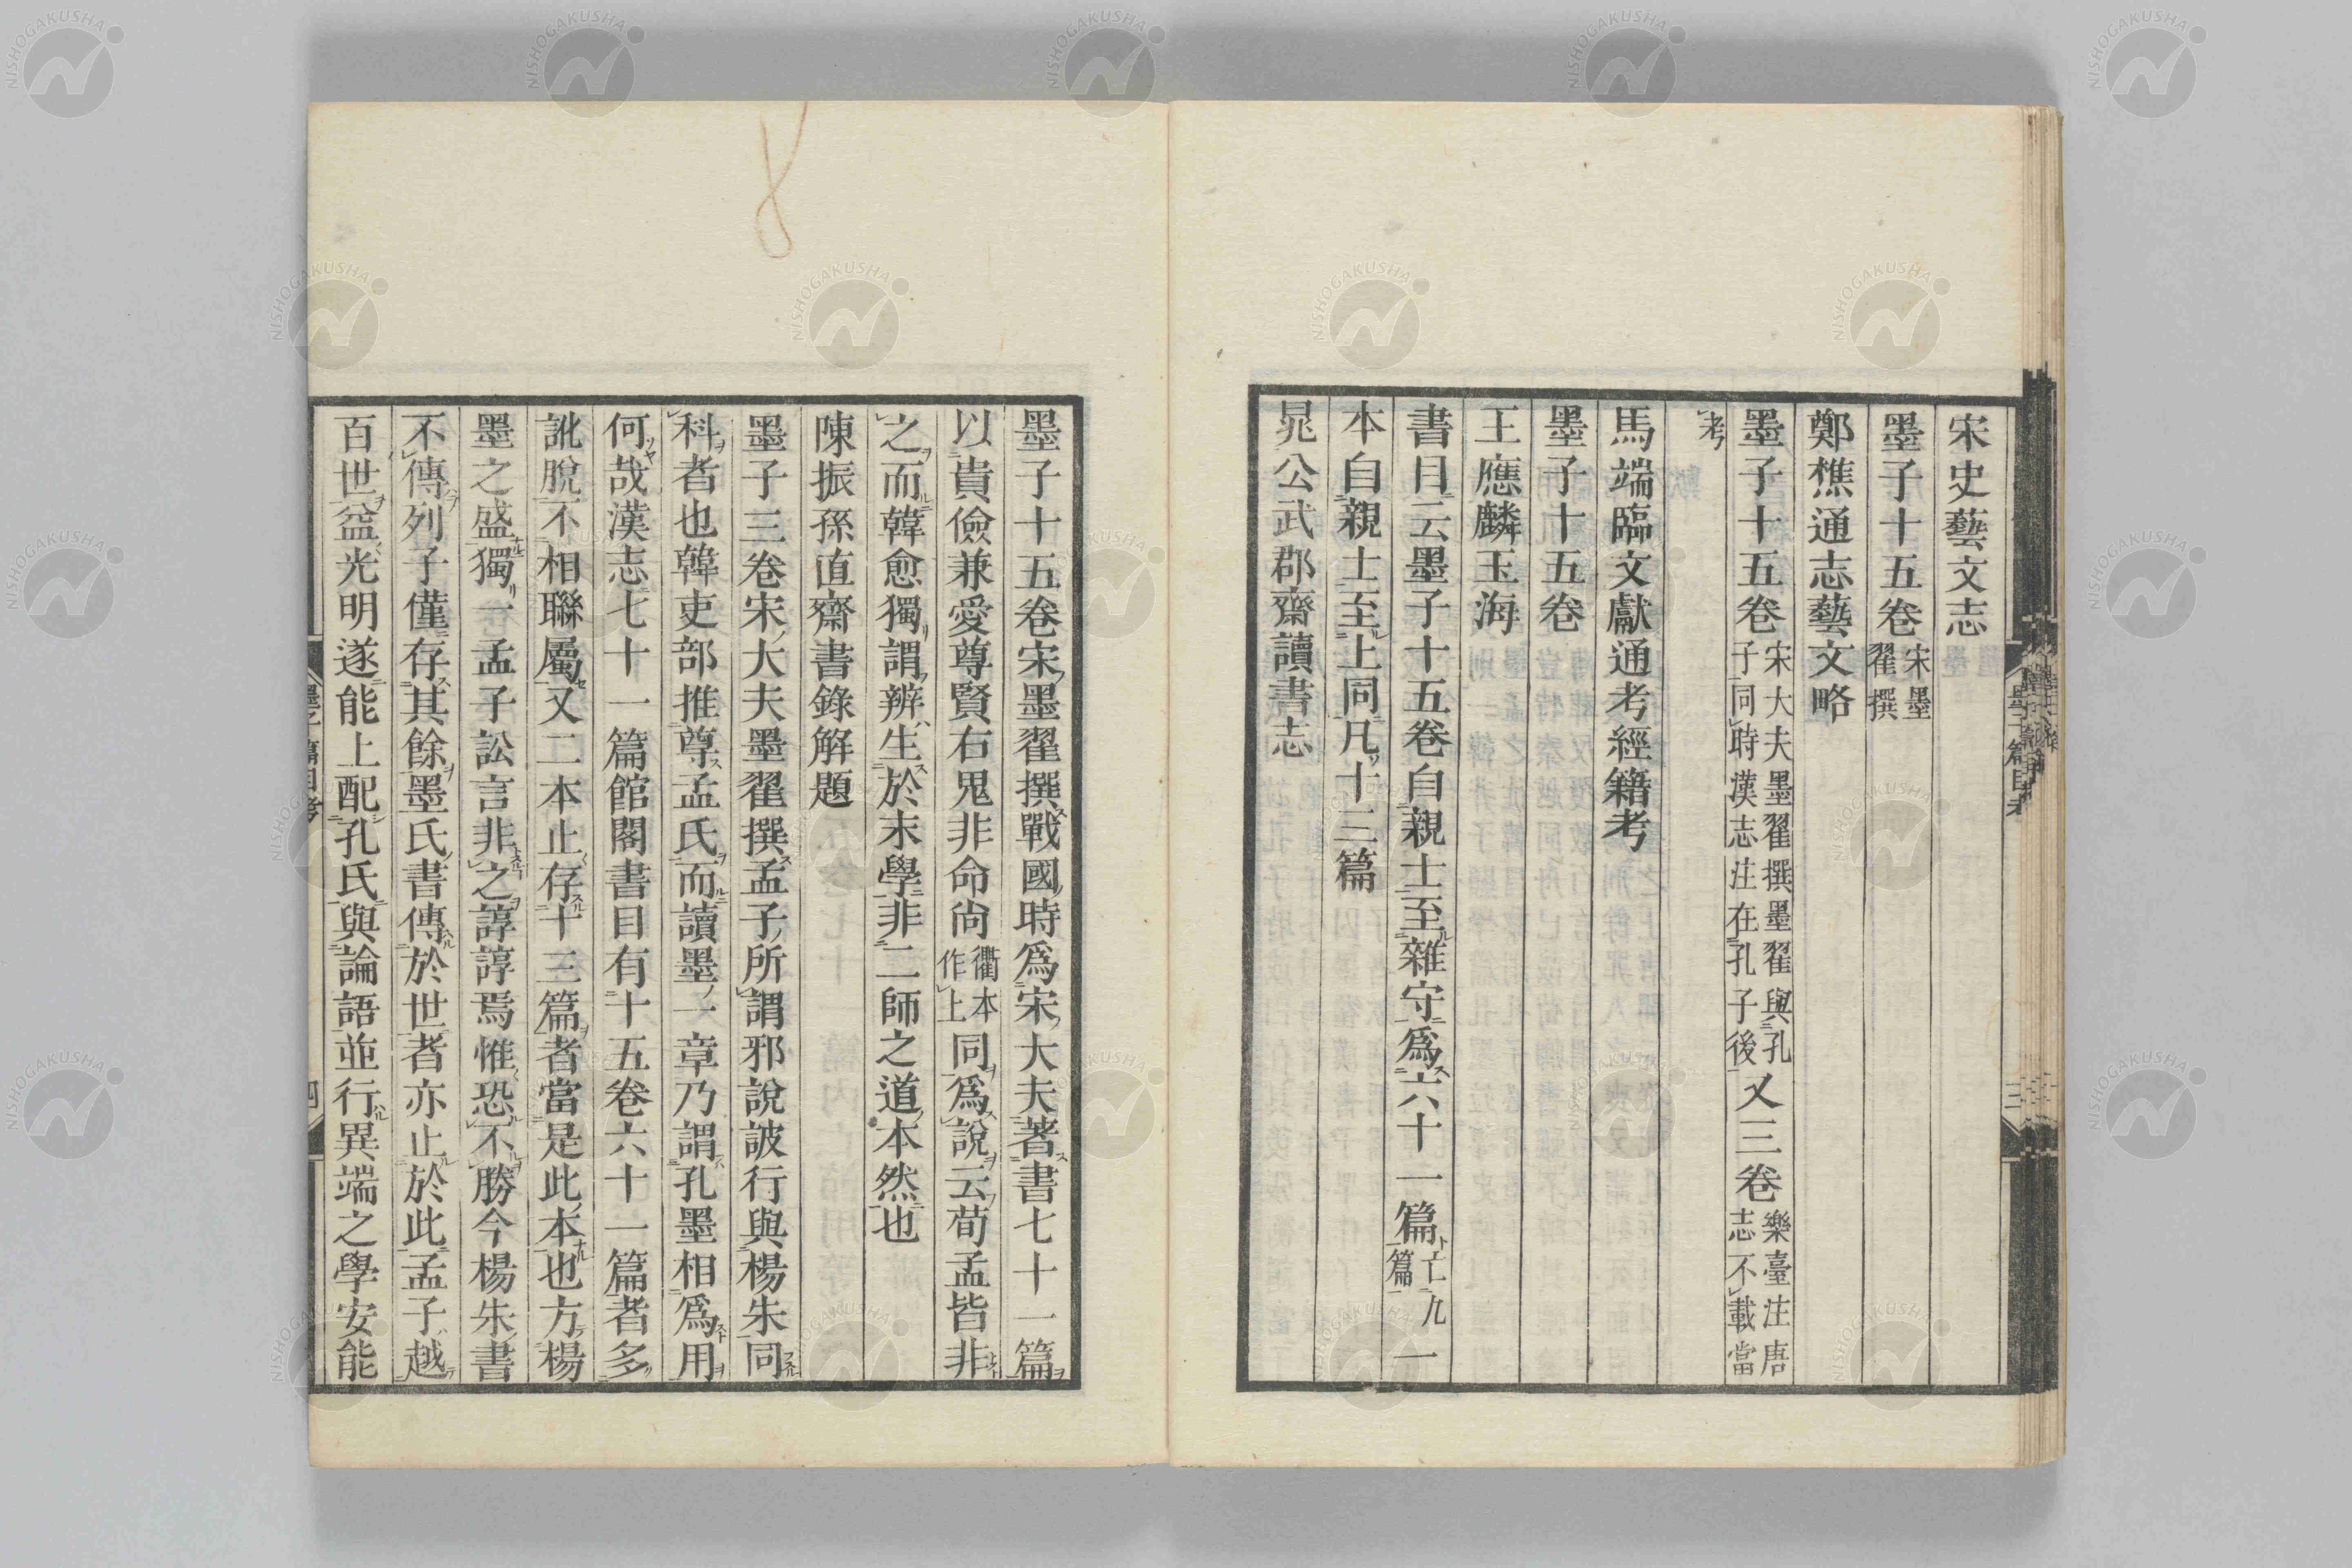 宋史藝文志
墨子十五卷宋墨翟撰
鄭樵通志藝文略
墨子十五卷宋大夫墨翟撰墨翟與孔子同時漢志注在孔子後又三卷樂臺注唐志不載當
考
馬端臨文獻通考經籍考
墨子十五卷
王應麟玉海
書目云墨子十五卷自親士至雜守爲六十一篇亡九篇一
本自親士至上同凡十三篇
晁公武郡齋讀書志
墨子十五卷宋墨翟撰戰國時爲宋大夫著書七十一篇
以貴儉兼愛尊賢右鬼非命尚衢本作上同爲說云荀孟皆非
之而韓愈獨謂辨生於末學非二師之道本然也
陳振孫直齋書錄解題
墨子三卷宋大夫墨翟撰孟子所謂邪說詖行與楊朱同
科者也韓吏部推尊孟氏而讀墨一章乃謂孔墨相爲用
何哉漢志七十一篇館閣書目有十五卷六十一篇者多
訛脫不相聯屬又二本止存十三篇者當是此本也方楊
墨之盛獨一孟子訟言非之諄諄焉惟恐不勝今楊朱書
不傳列子僅存其餘墨氏書傳於世者亦止於此孟子越
百世益光明遂能上配孔氏與論語並行異端之學安能
墨子篇目考
三
四
NISHOGAKUSHA